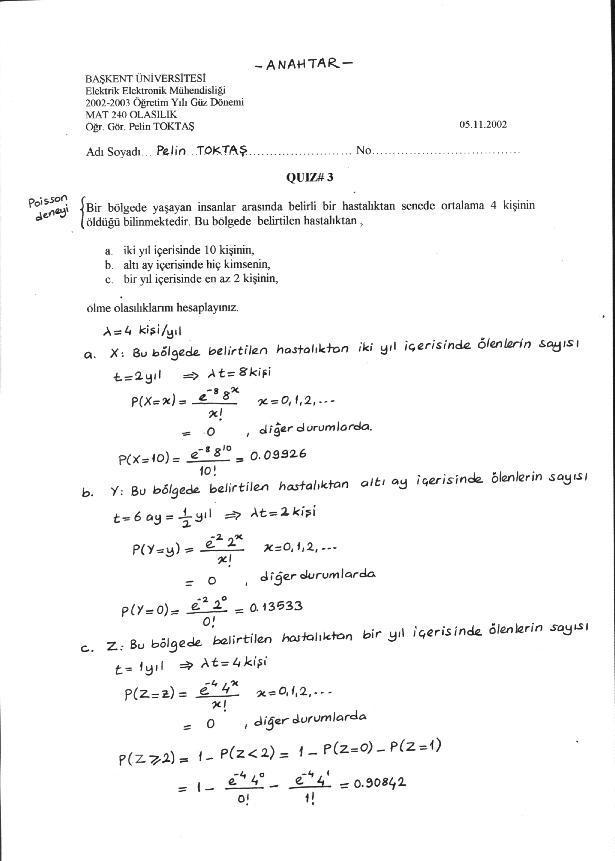 - ANAHTAR -
BAŞKENT ÜNİVERSİTESİ
Elektrik Elektronik Mühendisliği
2002-2003 Öğretim Yılı Güz Dönemi
MAT 240 OLASILIK
Öğr. Gör. Pelin TOKTAŞ 05.11.2002
Adı Soyadı... Pelin TOKTAŞ........................ No..................................
QUIZ# 3
Poisson deneyi
Bir bölgede yaşayan insanlar arasında belirli bir hastalıktan senede ortalama 4 kişinin
öldüğü bilinmektedir. Bu bölgede belirtilen hastalıktan ,
a. iki yıl içerisinde 10 kişinin,
b. altı ay içerisinde hiç kimsenin,
c. bir yıl içerisinde en az 2 kişinin,
ölme olasılıklarını hesaplayınız.
λ=4 kişi/yıl
a. X: Bu bölgede belirtilen hastalıktan iki yıl içerisinde ölenlerin sayısı
t=2yıl ⇒ λt=8kişi
P(X=x) = e^-8 8^x / x! x=0,1,2,...
= 0 , diğer durumlarda.
P(X=10) = e^-8 8^10 / 10! = 0.09926
b. Y: Bu bölgede belirtilen hastalıktan altı ay içerisinde ölenlerin sayısı
t=6 ay = 1/2 yıl ⇒ λt=2 kişi
P(Y=y) = e^-2 2^x / x! x=0,1,2,...
= 0 , diğer durumlarda
P(Y=0) = e^-2 2^0 / 0! = 0.13533
c. Z: Bu bölgede belirtilen hastalıktan bir yıl içerisinde ölenlerin sayısı
t= 1yıl ⇒ λt=4 kişi
P(Z=z) = e^-4 4^x / x! x=0,1,2,...
= 0 , diğer durumlarda
P(Z⩾2) = 1 - P(Z<2) = 1 - P(Z=0) - P(Z=1)
= 1 - e^-4 4^0 / 0! - e^-4 4^1 / 1! = 0.90842